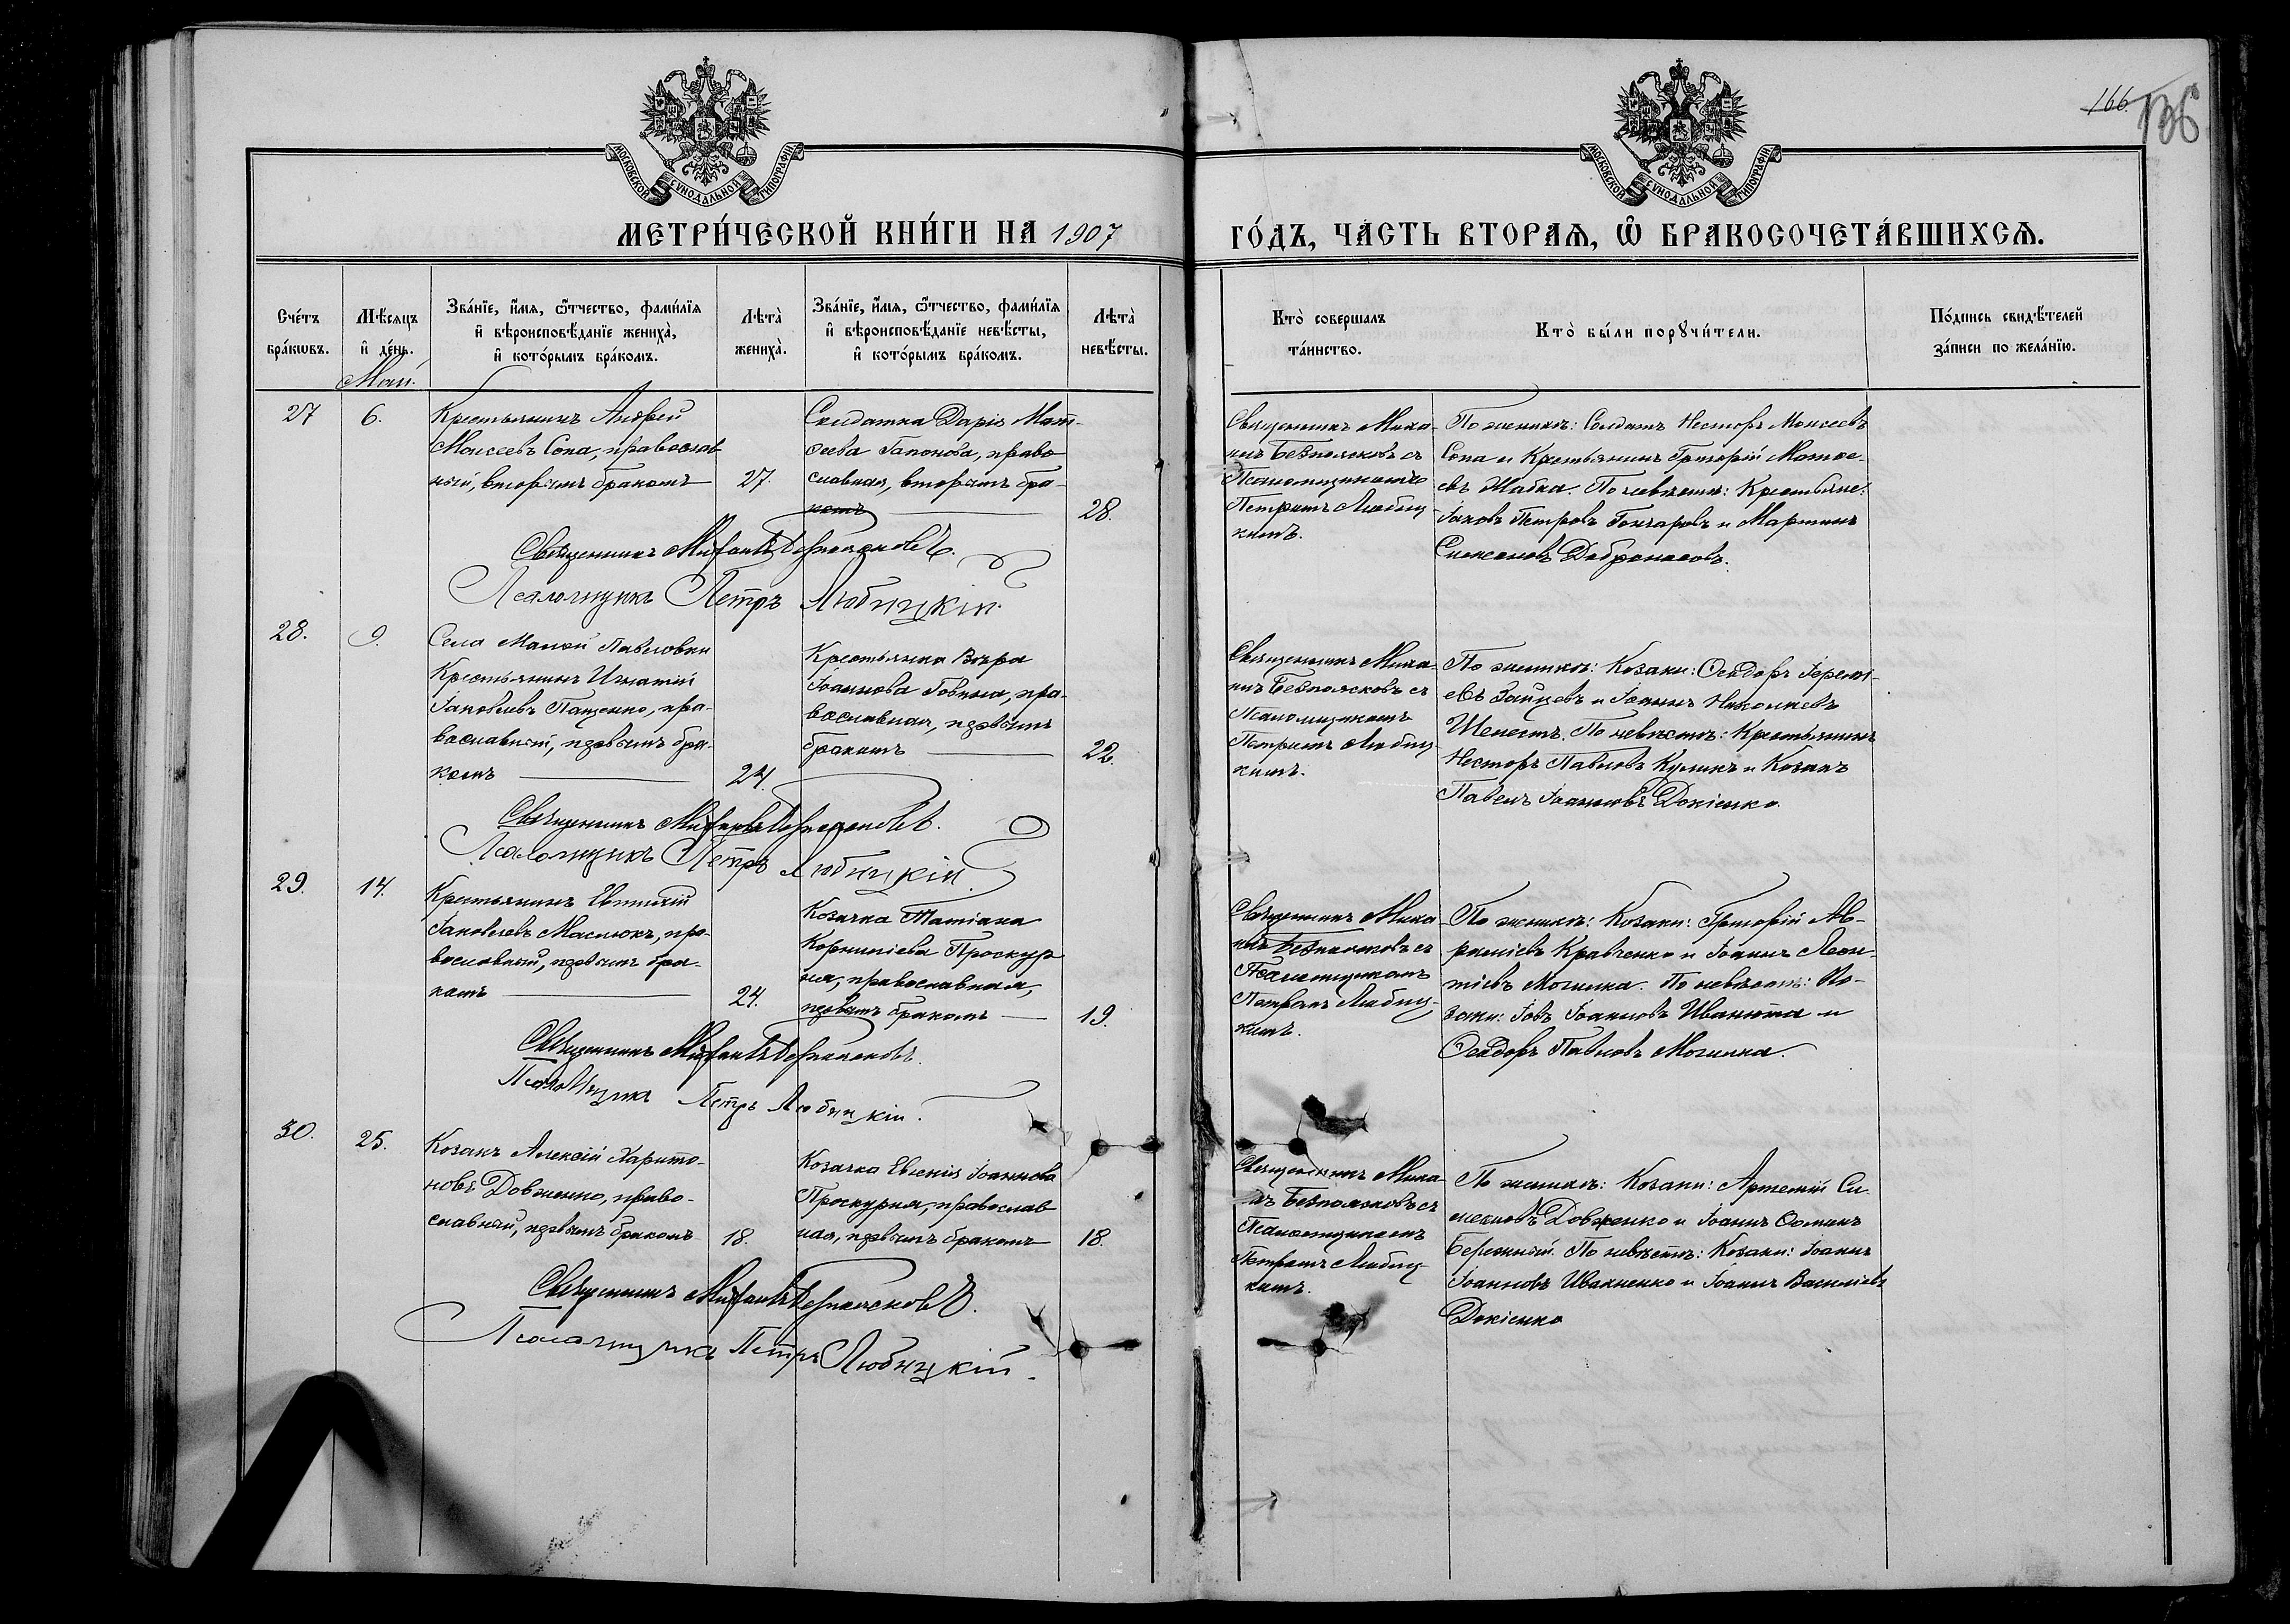 166.
136
МОСКОВСКОЙ СѴНОДАЛЬНОЙ ТИПОГРАФІИ
МОСКОВСКОЙ СѴНОДАЛЬНОЙ ТИПОГРАФІИ
МЕТРИ́ЧЕСКОЙ КНИ́ГИ НА 1907
ГО́ДЪ, ЧА́СТЬ ВТОРАѦ, Ѿ БРАКОСОЧЕТА́ВШИХСѦ.
Сче́тъ
бра́кѡвъ.
Мѣ́сяцъ
и҆ де́нь.
Зва́нїе, и҆́мя, ѻ҆́тчество, фами́лїя
и҆ вѣроисповѣ́данїе жениха̀,
и҆ кото́рымъ бра́комъ.
Лѣта̀
жениха̀.
Зва́нїе, и҆́мя, ѻ҆́тчество, фами́лїя
и҆ вѣроисповѣ́данїе невѣ́сты,
и҆ кото́рымъ бра́комъ.
Лѣта̀
невѣ́сты.
Кто̀ совершалъ
та́инство.
Кто̀ бы́ли порꙋчи́тели.
По́дпись свидѣ́телей
за́писи по жела́нїю.
Май.
27
6.
Крестьянинъ Андрей
Моисеевъ Сопа, православ
ный, вторымъ бракомъ
27.
Солдатка Дарія Мат-
ѳеева Гапонова, право
славная, вторымъ бра-
комъ
28.
Священникъ Миха-
илъ Безпоясковъ съ
Псаломщикомъ
Петромъ Любиц-
кимъ.
По женихѣ: Солдатъ Несторъ Моисеевъ
Сопа и Крестьянинъ Григорій Матѳе-
евъ Жабка. По невѣстѣ: Крестьяне:
Іаковъ Петровъ Гончаровъ и Мартинъ
Симеоновъ
Священникъ Михаилъ Безпоясковъ.
Псаломщикъ Петръ Любицкій.
28.
9.
Села Малой Павловки
Крестьянинъ Игнатій
Іаковлевъ Пащенко, пра-
вославный, первымъ бра-
комъ
24.
Крестьянка Вѣра
Іоаннова, пра-
вославная, первымъ
бракомъ
22.
Священникъ Миха-
илъ Безпоясковъ съ
Псаломщикомъ
Петромъ Любиц-
кимъ.
По женихѣ: Козаки: Ѳеодоръ Іерем-
евъ Зайцевъ и Іоаннъ Николаевъ
Шелестъ. По невѣстѣ: Крестьянинъ
Несторъ Павловъ Куликъ и Козакъ
Павелъ Іоанновъ Докіенко.
Священникъ Михаилъ Безпоясковъ.
Псаломщикъ Петръ Любицкій.
29.
14.
Крестьянинъ Евтихій
Іаковлевъ Маслюкъ, пра-
вославный, первымъ бра-
комъ
24.
Козачка Татіана
Корниліева Проскур
ня, православная,
первымъ бракомъ
19.
Священникъ Миха
илъ Безпоясковъ съ
Псаломщикомъ
Петромъ Любиц-
кимъ.
По женихѣ: Козаки: Григорій Ав-
раміевъ Кравченко и Іоаннъ Леон-
тіевъ Могилка. По невѣстѣ: Ко-
заки: Іовъ Іоанновъ Иванюта и
Ѳеодоръ Павловъ Могилка.
Священникъ Михаилъ Безпоясковъ.
Псаломщикъ Петръ Любицкій.
30.
25.
Козакъ Алексій Харито-
новъ Довженко, право-
славный, первымъ бракомъ
18.
Козачка Евгенія Іоаннова
Проскурня, православ
ная, первымъ бракомъ
18.
Священникъ Миха-
илъ Безпоясковъ съ
Псаломщикомъ
Петромъ Любиц-
кимъ.
По женихѣ: Козаки: Артемій Си-
меоновъ Довженко и Іоаннъ Ѳоминъ
Бережный. По невѣстѣ: Козаки: Іоаннъ
Іоанновъ Ивахненко и Іоаннъ Василіевъ
Докіенко
Священникъ Михаилъ Безпоясковъ.
Псаломщикъ Петръ Любицкій.